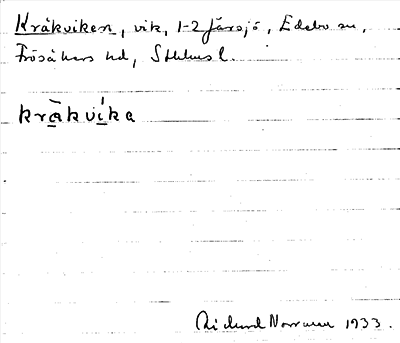 Kråkviken, vik, 1-2 Färsjö, Edebo sn,
Frösåkers hd, Sthlms l.
kràkvíka
Richard Norrman 1933.